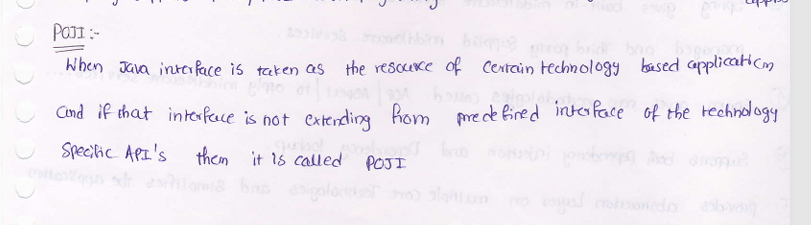 POJI :-
When Java interface is taken as the resource of certain technology based application
and if that interface is not extending from predefined interface of the technology
specific API's then it is called POJI